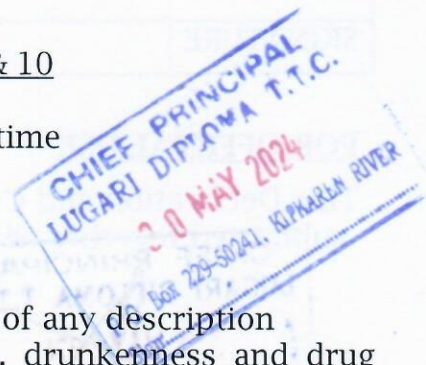 & 10
time
CHIEF PRINCIPAL
LUGARI DIPLOMA T.T.C.
30 MAY 2024
P.O. Box 229-50241, KIPKAREN RIVER
of any description
drunkenness and drug